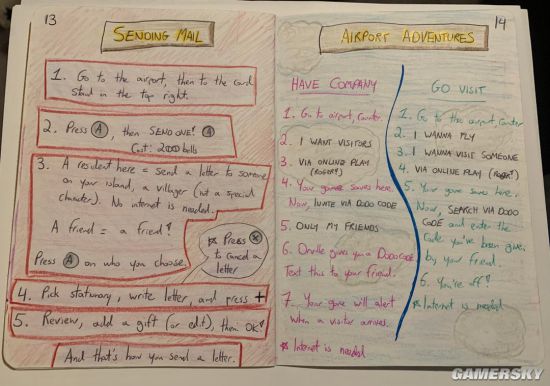 13
SENDING MAIL
1. Go to the airport, then to the card
stand in the top right.
2. Press A, then SEND ONE! A
Cost: 200 bells
3. A resident here = send a letter to someone
on your island, a villager (not a special
character). No internet is needed.
A friend = a friend!
Press A on who you choose.
* Press X
to cancel a
letter
4. Pick stationary, write letter, and press +
5. Review, add a gift (or edit), then OK!
And that's how you send a letter.
14
AIRPORT ADVENTURES
HAVE COMPANY
1. Go to airport, Counter.
2. I WANT VISITORS
3. VIA ONLINE PLAY
(ROGER!)
4. Your game saves here.
Now, INVITE VIA DODO CODE
5. ONLY MY FRIENDS
6. Orville gives you a DODO CODE
Text this to your friend.
7. Your game will alert
when a visitor arrives.
* Internet is needed
GO VISIT
1. Go to the airport, Counter
2. I WANNA FLY
3. I WANNA VISIT SOMEONE
4. VIA ONLINE PLAY (ROGER!)
5. Your game saves here.
Now, SEARCH VIA DODO
CODE and enter the
code you've been given
by your friend.
6. You're off!
* Internet is needed
GAMERSKY